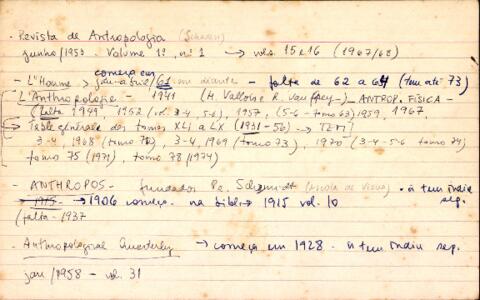 - Revista de Antropologia (Schaden)
junho/1953 - Volume 1º, nº 1 → vols. 15 e 16 (1967/68)
começa em
- L'Homme → jan-abril/61 em diante - falta de 62 a 64 (tem até 73)
L'Anthropologie - 1941 (H. Vallois e R. Vaufrey -) ANTROP. FÍSICA -
- (falta 1949, 1952 (vol. 3-4, 5-6), 1957, (5-6 - tomo 63) 1959, 1967
→ Table générale des tomes XLI a LX (1931-56) → TEM
3-4, 1968 (tomo 72), 3-4, 1969 (tomo 73), 1970 (3-4-5-6 tomo 74)
tomo 75 (1971), tomo 78 (1974)
- ANTHROPOS - fundador Pe. Schmidt (escola de Viena) - ñ tem índice sep.
1915 - → 1906 começo - na biblio 1915 vol. 10
(falta - 1937
- Anthropological Quarterly → começa em 1928 - ñ tem índice sep.
jan/1958 - vol. 31